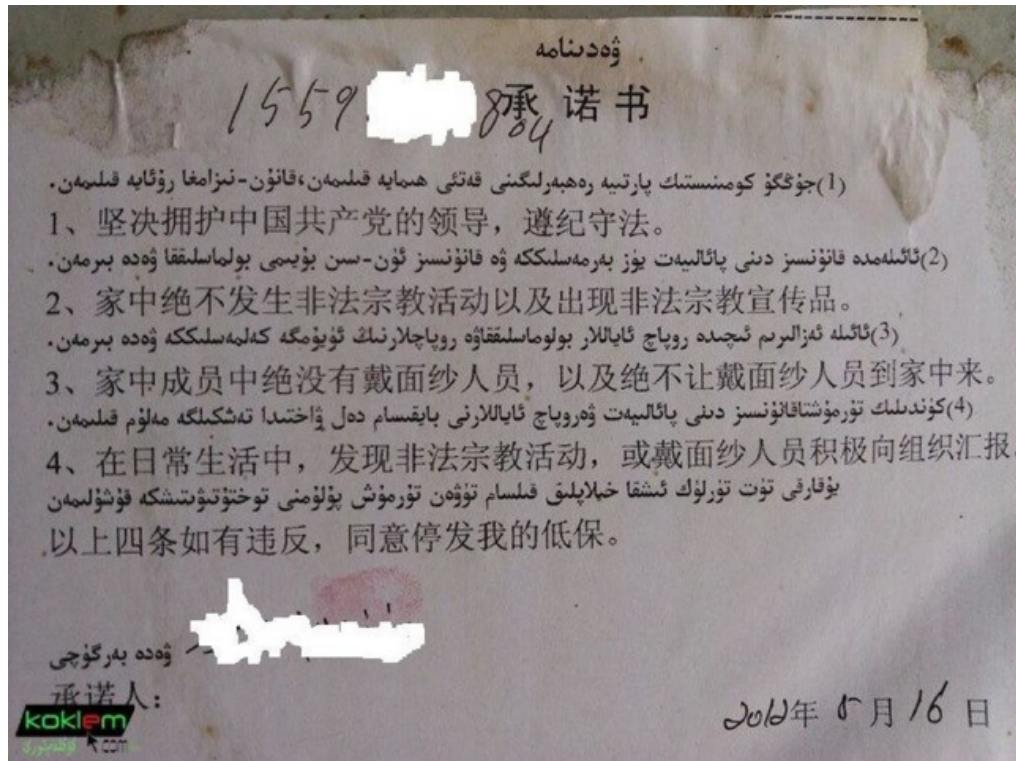 ۋەدىنامە
1559 804
承诺书
(1)جۇڭگۇ كومىنىستىك پارتىيە رەھبەرلىگىنى قەتئى ھىمايە قىلىمەن،قانۇن-نىزامغا رىئايە قىلىمەن.
1、坚决拥护中国共产党的领导，遵纪守法。
(2)ئائىلەمدە قانۇنسىز دىنى پائالىيەت يۈز بەرمەسلىككە ۋە قانۇنسىز ئۈن-سىن بۇيىمى بولماسلىققا ۋەدە بىرمەن.
2、家中绝不发生非法宗教活动以及出现非法宗教宣传品。
(3)ئائىلە ئەزالىرىم ئىچىدە روپاچ ئاياللار بولوماسلىققاۋە روپاچلارنىڭ ئۈيۈمگە كەلمەسلىككە ۋەدە بىرمەن.
3、家中成员中绝没有戴面纱人员，以及绝不让戴面纱人员到家中来。
(4)كۈندىلىك تۇرمۇشتاقانۇنسىز دىنى پائالىيەت ۋەروپاچ ئاياللارنى بايقىسام دەل ۋاختىدا تەشكىلگە مەلۇم قىلىمەن.
4、在日常生活中，发现非法宗教活动，或戴面纱人员积极向组织汇报。
يۇقارقى تۆت تۈرلۈك ئىشقا خىلاپلىق قىلسام تۆۋەن تۇرمۇش پۇلۇمنى توختۇتىۋىتىشكە قۇشۇلىمەن
以上四条如有违反，同意停发我的低保。
ۋەدە بەرگۈچى
承诺人：
2012年 5月 16日
koklem
.com